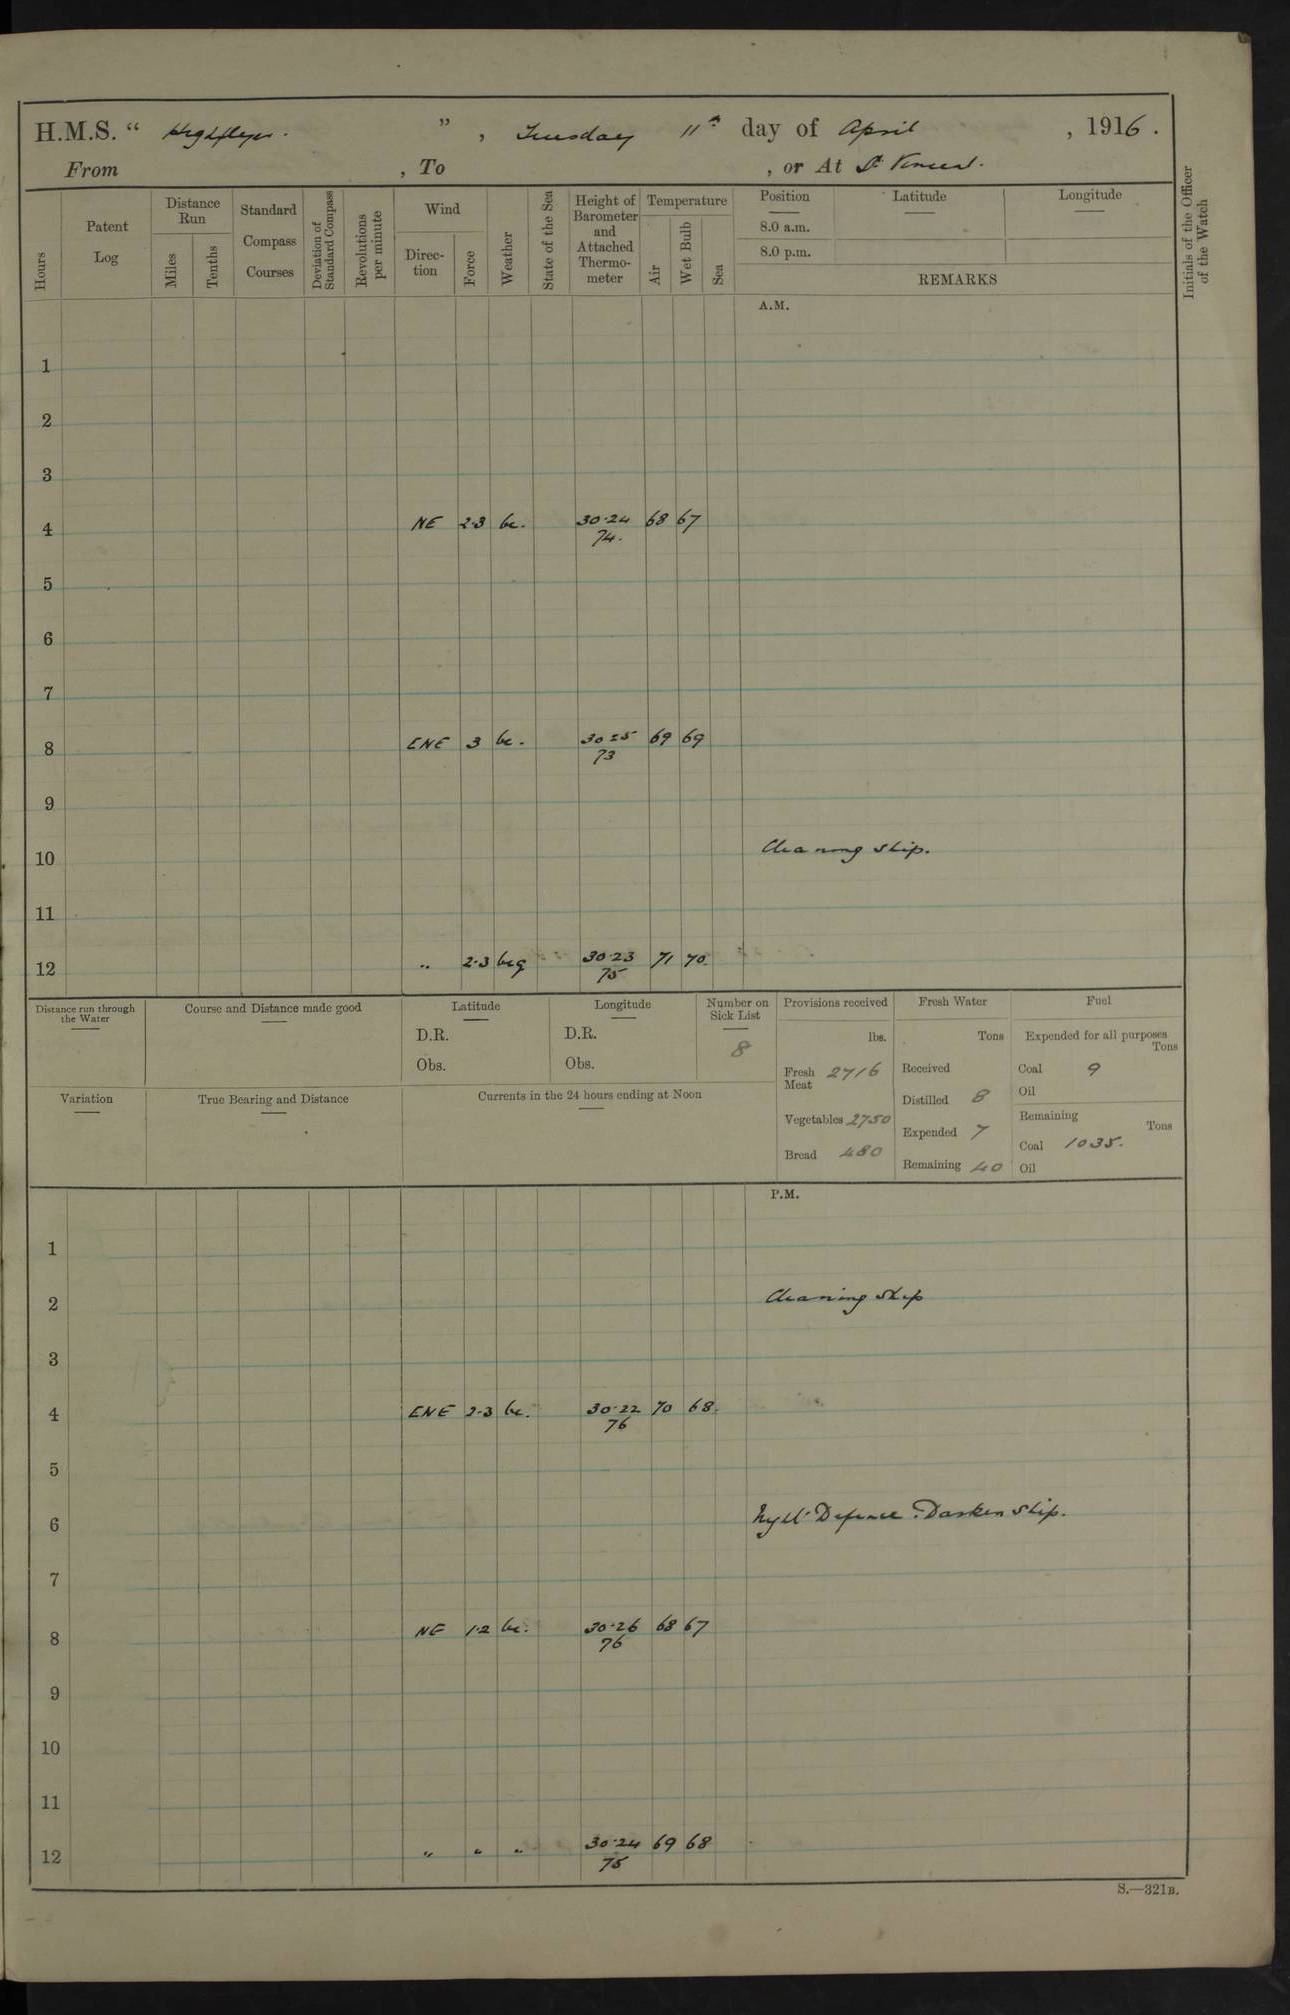 H.M.S. " Highflyer. " , Tuesday 11th day of April , 1916.
From , To , or At St Vincent.
Hours
Patent Log
Distance Run
Miles
Tenths
Standard Compass Courses
Deviation of Standard Compass
Revolutions per minute
Wind
Direction
Force
Weather
State of the Sea
Height of Barometer and Attached Thermometer
Temperature
Air
Wet Bulb
Sea
Position
8.0 a.m.
8.0 p.m.
Latitude
Longitude
REMARKS
Initials of the Officer of the Watch
A.M.
1
2
3
4 NE 2.3 bc. 30.24 68 67
74.
5
6
7
8 ENE 3 bc. 30 25 69 69
73
9
10 Cleaning ship.
11
12 " 2.3 bcq 30.23 71 70.
75
Distance run through the Water
Course and Distance made good
Latitude
D.R.
Obs.
Longitude
D.R.
Obs.
Number on Sick List
8
Provisions received
lbs.
Fresh Meat 2716
Vegetables 2750
Bread 480
Fresh Water
Tons
Received
Distilled 8
Expended 7
Remaining 40
Fuel
Expended for all purposes
Tons
Coal 9
Oil
Remaining
Tons
Coal 1035.
Oil
Variation
True Bearing and Distance
Currents in the 24 hours ending at Noon
P.M.
1
2 Cleaning ship
3
4 ENE 2.3 bc. 30.22 70 68.
76
5
6 Night Defence. Darken Ship.
7
8 NE 1.2 bc. 30.26 68 67
76
9
10
11
12 " " " 30.24 69 68
75
S.—321B.